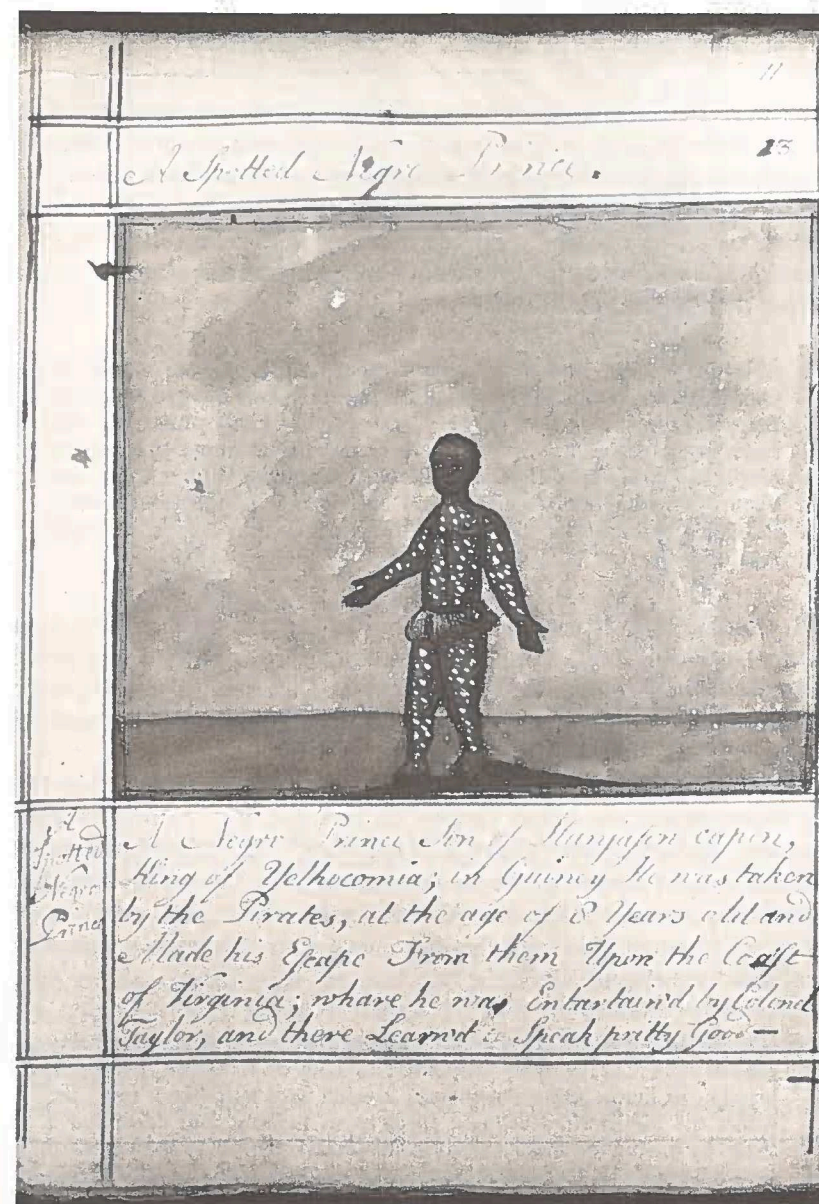 11
23
A Spotted Negro Prince.
A
Spotted
Negro
Prince
A Negro Prince Son of capin,
King of Yelhocomia; in Guiney he was taken
by the Pirates, at the age of 8 Years old and
Made his Escape From them Upon the Coast
of Virginia; whare he was Entartain'd by Colonel
Taylor, and there Learn'd to Speak pritty Good—